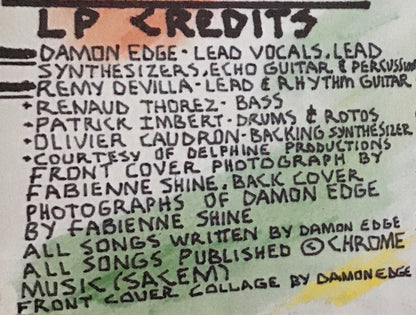 LP CREDITS
DAMON EDGE - LEAD VOCALS, LEAD
SYNTHESIZERS, ECHO GUITAR & PERCUSSION
REMY DEVILLA - LEAD & RHYTHM GUITAR
* RENAUD THOREZ - BASS
* PATRICK IMBERT - DRUMS & ROTOS
* OLIVIER CAUDRON - BACKING SYNTHESIZER
* COURTESY OF DELPHINE PRODUCTIONS
FRONT COVER PHOTOGRAPH BY
FABIENNE SHINE. BACK COVER
PHOTOGRAPHS OF DAMON EDGE
BY FABIENNE SHINE
ALL SONGS WRITTEN BY DAMON EDGE
ALL SONGS PUBLISHED © CHROME
MUSIC (SACEM)
FRONT COVER COLLAGE BY DAMON EDGE